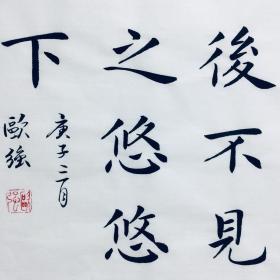 後不見
之悠悠
下
庚子三月
歐強